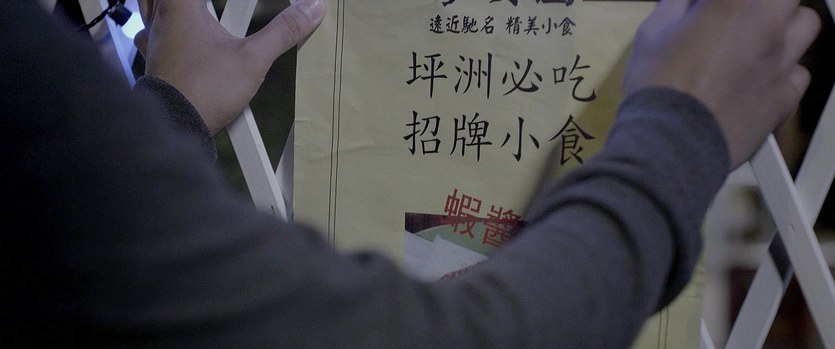 遠近馳名 精美小食
坪洲必吃
招牌小食
蝦醬